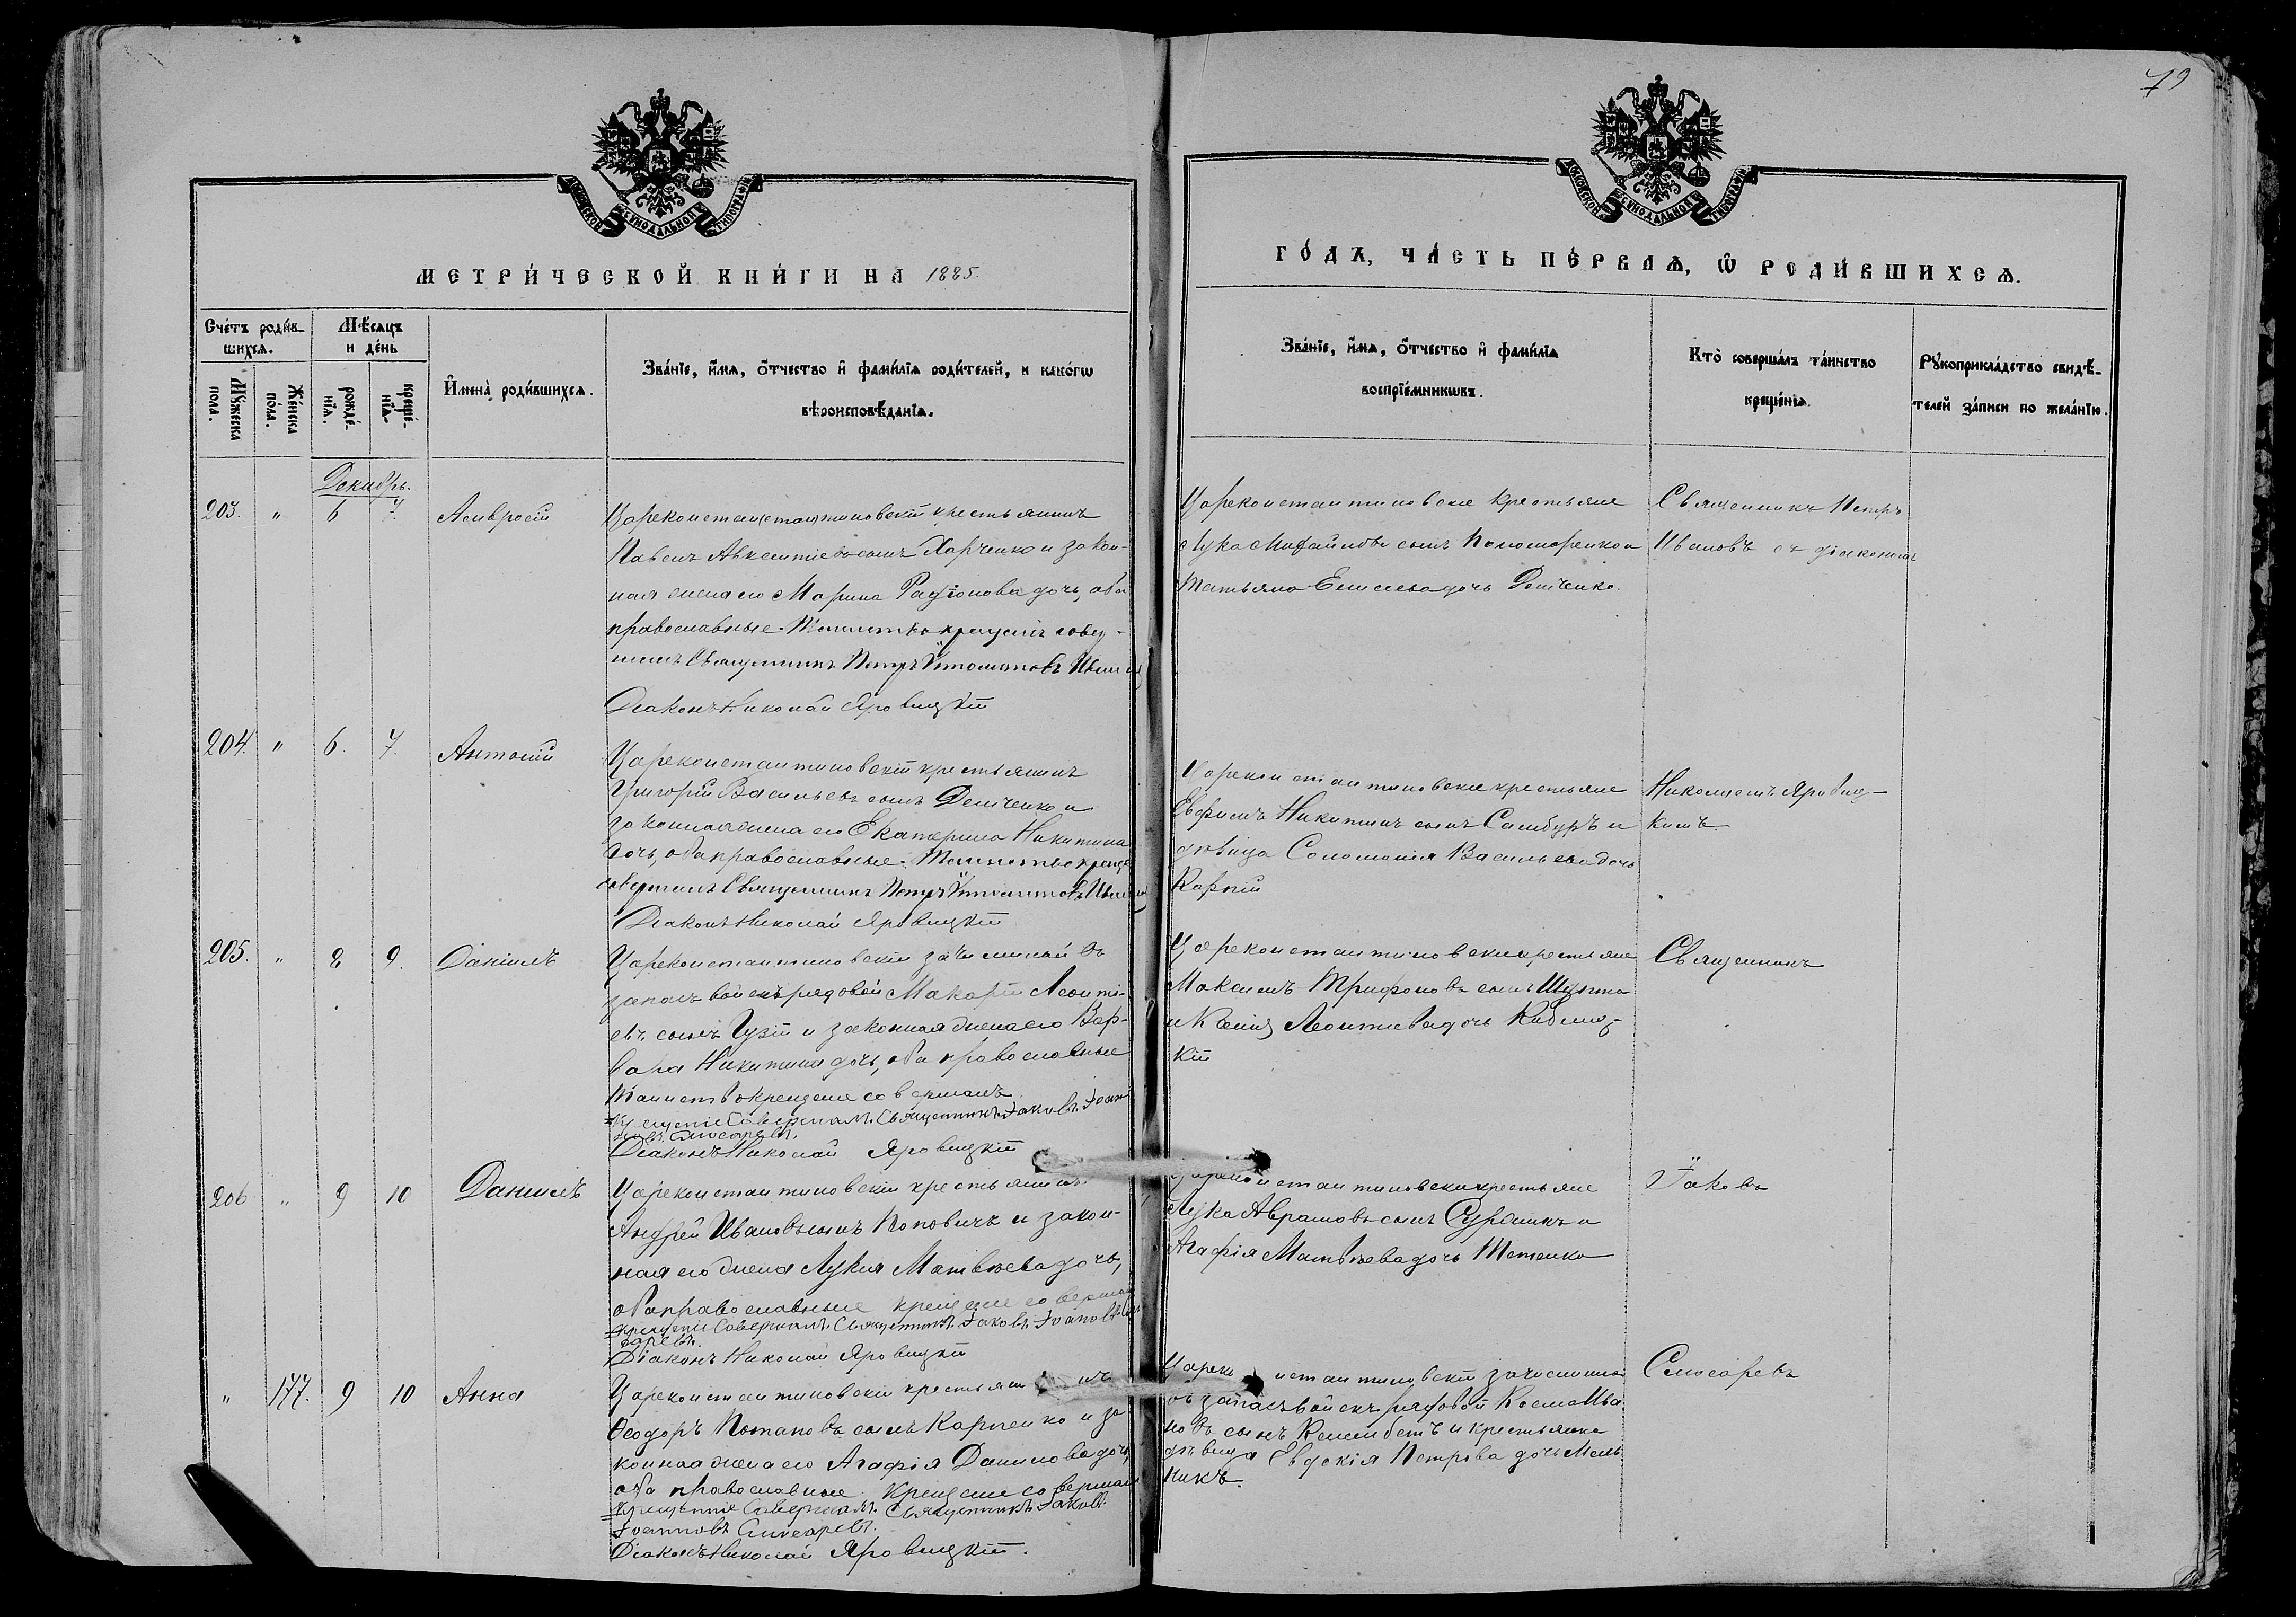 79
МОСКОВСКОЙ СУНОДАЛЬНОЙ ТИПОГРАФІИ
МОСКОВСКОЙ СУНОДАЛЬНОЙ ТИПОГРАФІИ
МЕТРИ́ЧЕСКОЙ КНИ́ГИ НА 1885.
ГО́ДА, ЧА́СТЬ ПЕ́РВАѦ, Ѡ РОДИ́ВШИХСѦ.
Сче́тъ роди́в-
шихсѧ.
Му́жеска
пола.
Же́нска
по́ла.
Мѣ́сяцъ
и де́нь
рожде́-
нїѧ.
креще́-
нїѧ.
И҆мена̀ роди́вшихсѧ.
Зва́нїе, и҆́мѧ, о҆́тчество и҆ фами́лїа роди́телей, и како́гѡ
вѣроисповѣ́данїѧ.
Зва́нїе, и҆́мѧ, о҆́тчество и҆ фами́лїа
воспрїе́мникѡвъ.
Кто̀ соверша́лъ та́инство
креще́нїѧ.
Рꙋкоприкла́дство свидѣ́-
телей за́писи по жела́нїю.
Декабрь.
203. " 6 7. Амвросій
Цареконстантиновскій крестьянинъ
Павелъ Авксентіевъ сынъ Харченко и закон-
ная жена его Марина Радіонова дочь, оба
православные. Таинство крещенія совер-
шилъ Священникъ Петръ
Діаконъ Николай Яровицкій
Цареконстантиновскіе крестьяне
Лука Михайловъ сынъ Пономаренко и
Татьяна Елисеева дочь Демченко.
Священникъ Петръ
Ивановъ съ діакономъ
204. " 6. 7. Антоній
Цареконстантиновскій крестьянинъ
Григорій Васильевъ сынъ Демченко и
законная жена его Екатерина Никитина
дочь, оба православные. Таинство креще
совершилъ Священникъ Петръ
Діаконъ Николай Яровицкій
Цареконстантиновскіе крестьяне
Евфимъ Никитинъ сынъ Самбуръ и
дѣвица Соломонія Васильева дочь
Карпій
Николаемъ Яровиц-
кимъ.
205. " 8 9. Даніилъ
Цареконстантиновскій зачисленный въ
запасъ войскъ рядовой Макарій Леонті-
евъ сынъ Гузій и законная жена его Вар-
вара Никитина дочь, оба православные
Таинство крещенія совершалъ
Крещеніе Совершалъ. Священникъ Іаковъ Іоан
новъ Слюсаревъ.
Діаконъ Николай Яровицкій
Цареконстантиновскіе крестьяне
Максимъ Трифоновъ сынъ
и Ксенія Леонтіева дочь
кій
Священникъ
206 " 9 10 Даніилъ
Цареконстантиновскій крестьянинъ
Андрей Ивановъ сынъ Поповичъ и закон-
ная его жена Лукія Матвѣева дочь,
оба православные крещеніе совершалъ
Крещеніе Совершалъ. Священникъ Іаковъ Іоановъ Слю
саревъ.
Діаконъ Николай Яровицкій
Цареконстантиновскіе крестьяне
Лука Аврамовъ сынъ и
Агафія Матвѣева дочь Тетенко
Іаковъ
" 177. 9 10 Анна
Цареконстантиновскій крестьянинъ
Ѳеодоръ Потаповъ сынъ Карпенко и за
конная жена его Агафія Данилова дочь,
оба православные. Крещеніе совершалъ
Крещеніе Совершалъ. Священникъ Іаковъ
Іоанновъ Слюсаревъ.
Діаконъ Николай Яровицкій.
Цареконстантиновскій зачисленный
въ запасъ войскъ рядовой Косма Ива
новъ сынъ и крестьянка
дѣвица Евдокія Петрова дочь Мель
никъ.
Слюсаревъ